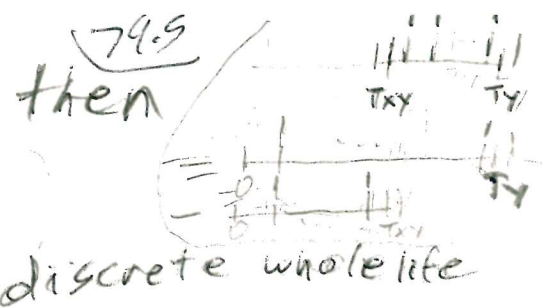 79.5
then
Txy Ty
=
0 Ty
- 0 Txy
discrete whole life